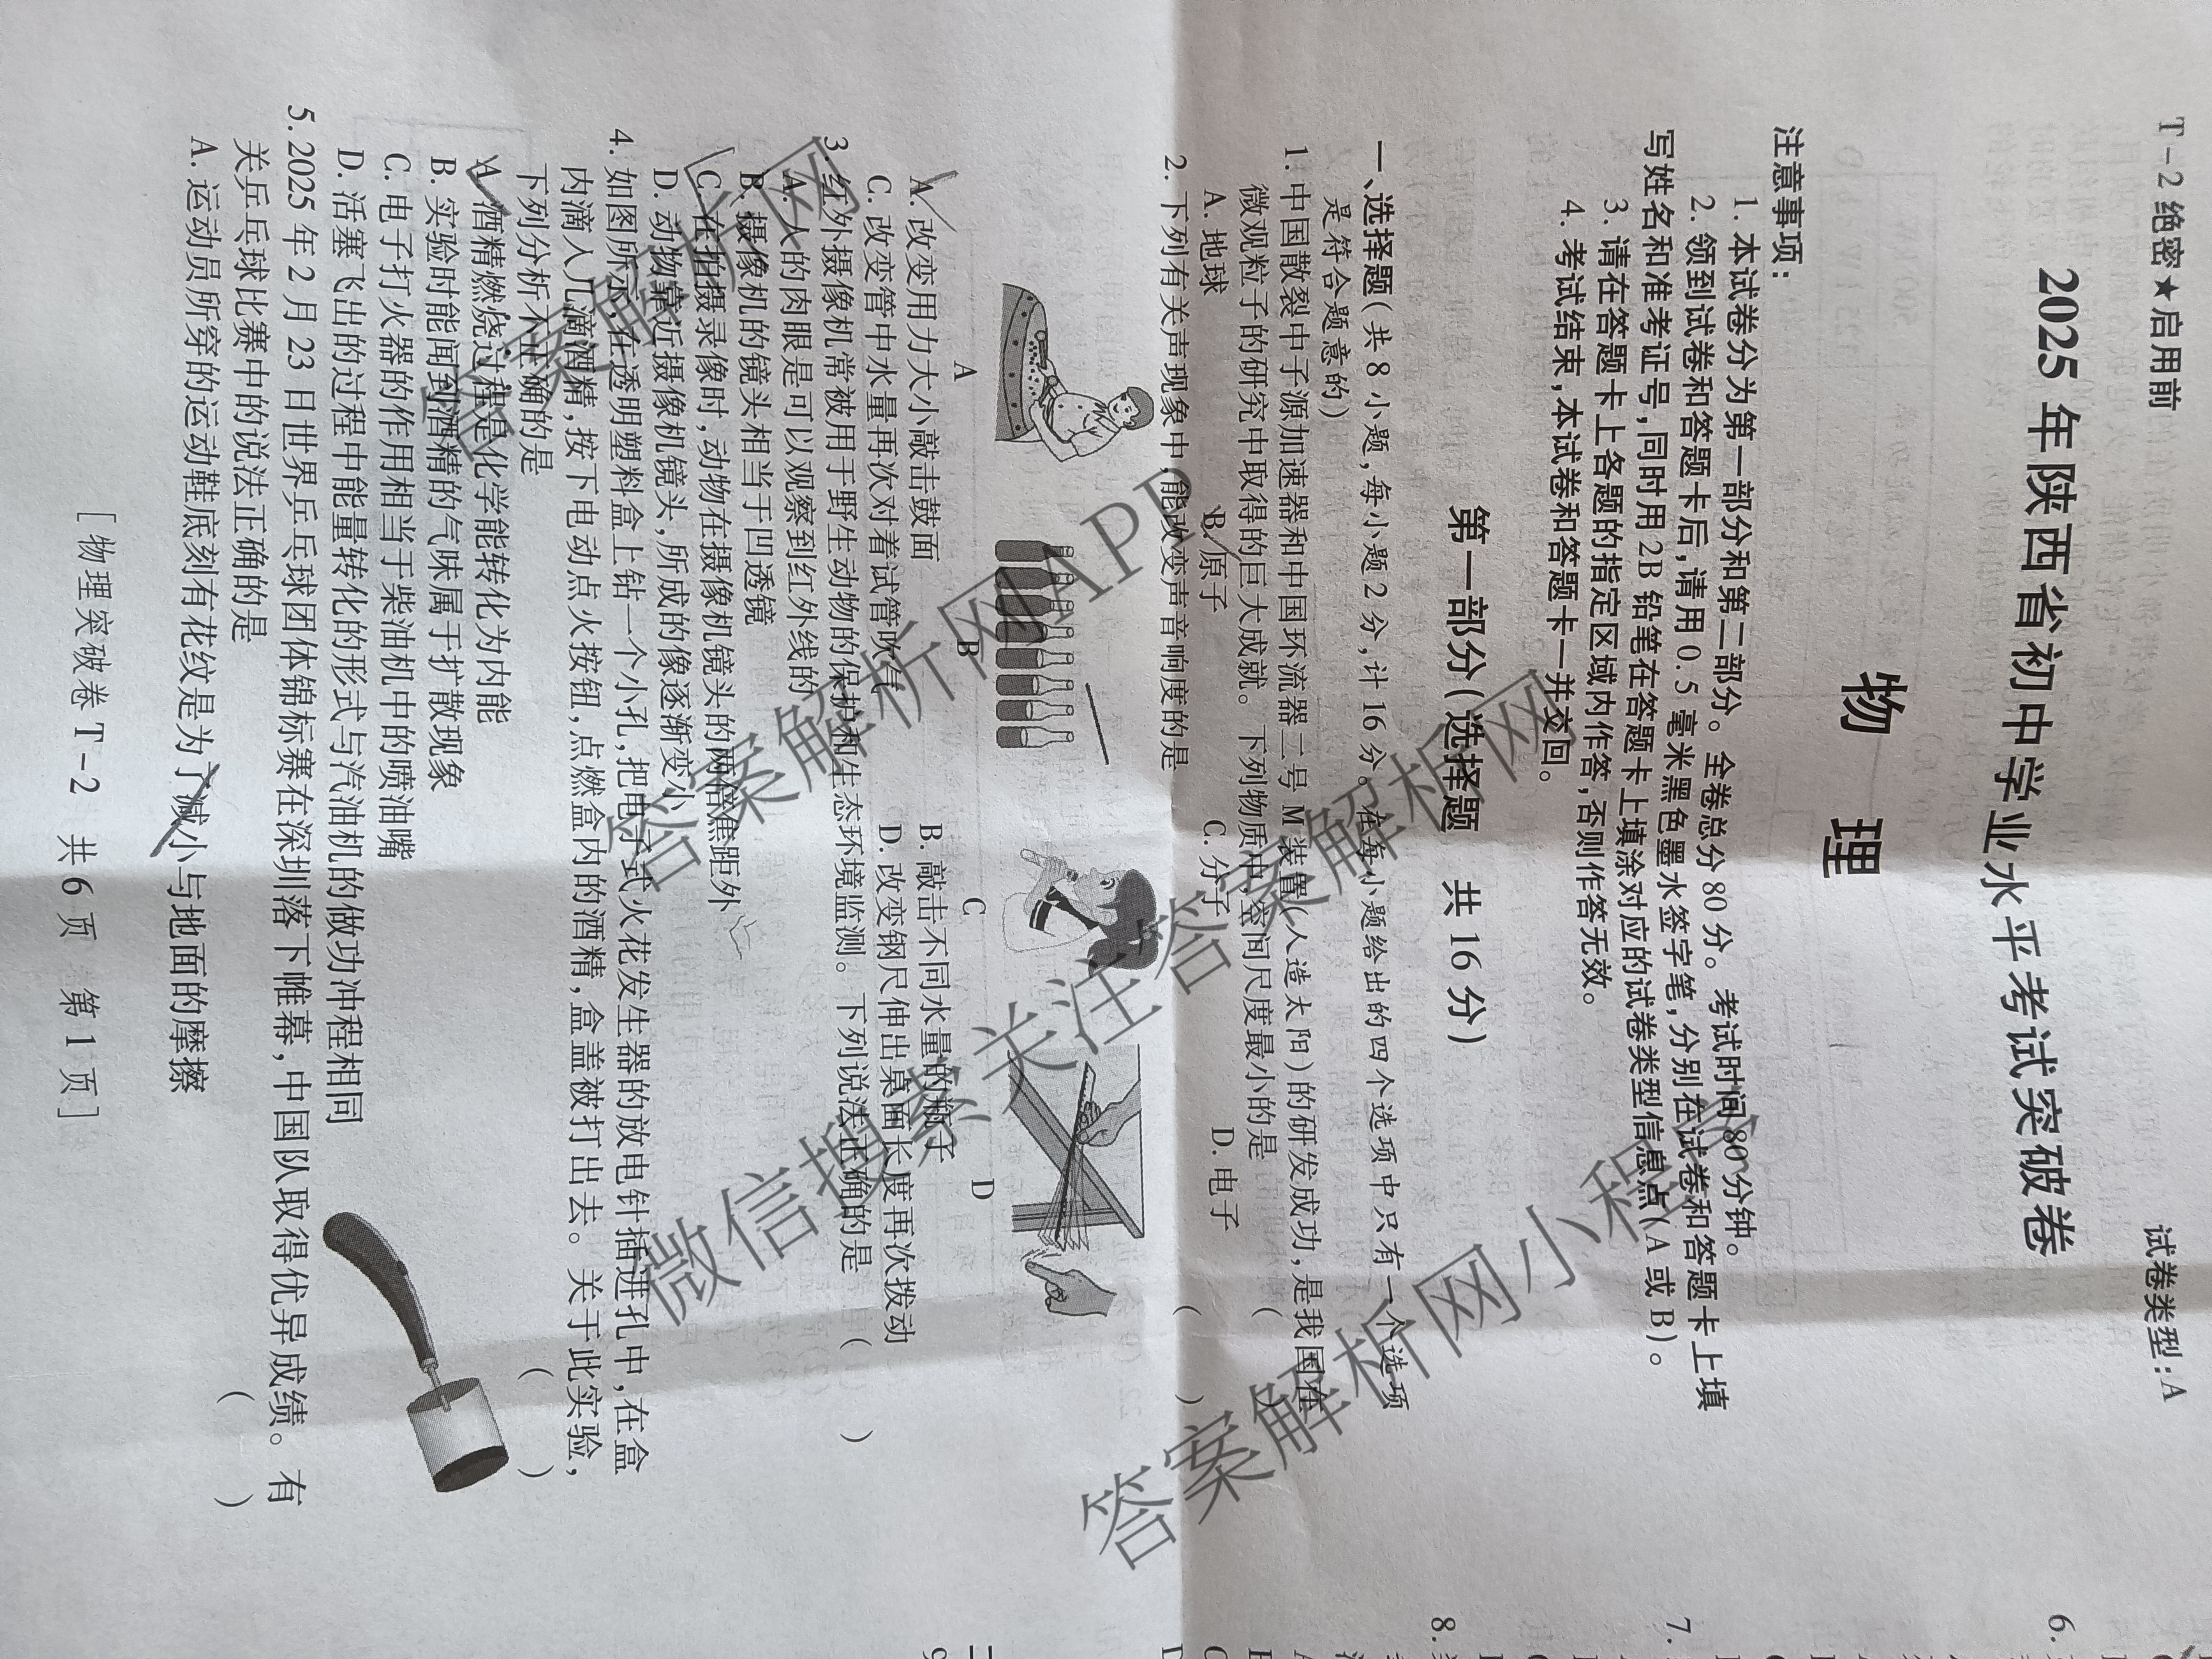 T-2 绝密★启用前
试卷类型:A
2025 年陕西省初中学业水平考试突破卷
物 理
注意事项:
1. 本试卷分为第一部分和第二部分。全卷总分 80 分。考试时间 80 分钟。
2. 领到试卷和答题卡后,请用 0.5 毫米黑色墨水签字笔,分别在试卷和答题卡上填
写姓名和准考证号,同时用 2B 铅笔在答题卡上填涂对应的试卷类型信息点(A 或 B)。
3. 请在答题卡上各题的指定区域内作答,否则作答无效。
4. 考试结束,本试卷和答题卡一并交回。
第一部分(选择题 共 16 分)
一、选择题(共 8 小题,每小题 2 分,计 16 分。在每小题给出的四个选项中只有一个选项
是符合题意的)
1. 中国散裂中子源加速器和中国环流器二号 M 装置(人造太阳)的研发成功,是我国在
微观粒子的研究中取得的巨大成就。下列物质中,空间尺度最小的是 ( )
A. 地球 B. 原子 C. 分子 D. 电子
2. 下列有关声现象中,能改变声音响度的是 ( )
A B C D
A. 改变用力大小敲击鼓面 B. 敲击不同水量的瓶子
C. 改变管中水量再次对着试管吹气 D. 改变钢尺伸出桌面长度再次拨动
3. 红外摄像机常被用于野生动物的保护和生态环境监测。下列说法正确的是 ( )
A. 人的肉眼是可以观察到红外线的
B. 摄像机的镜头相当于凹透镜
C. 在拍摄录像时,动物在摄像机镜头的两倍焦距外
D. 动物靠近摄像机镜头,所成的像逐渐变小
4. 如图所示,在透明塑料盒上钻一个小孔,把电子式火花发生器的放电针插进孔中,在盒
内滴入几滴酒精,按下电动点火按钮,点燃盒内的酒精,盒盖被打出去。关于此实验,
下列分析不正确的是 ( )
A. 酒精燃烧过程是化学能转化为内能
B. 实验时能闻到酒精的气味属于扩散现象
C. 电子打火器的作用相当于柴油机中的喷油嘴
D. 活塞飞出的过程中能量转化的形式与汽油机的做功冲程相同
5. 2025 年 2 月 23 日世界乒乓球团体锦标赛在深圳落下帷幕,中国队取得优异成绩。有
关乒乓球比赛中的说法正确的是 ( )
A. 运动员所穿的运动鞋底刻有花纹是为了减小与地面的摩擦
[物理突破卷 T-2 共 6 页 第 1 页]
6.
7.
8.
答案解析网
答案解析网APP
微信搜索关注答案解析网
答案解析网小程序